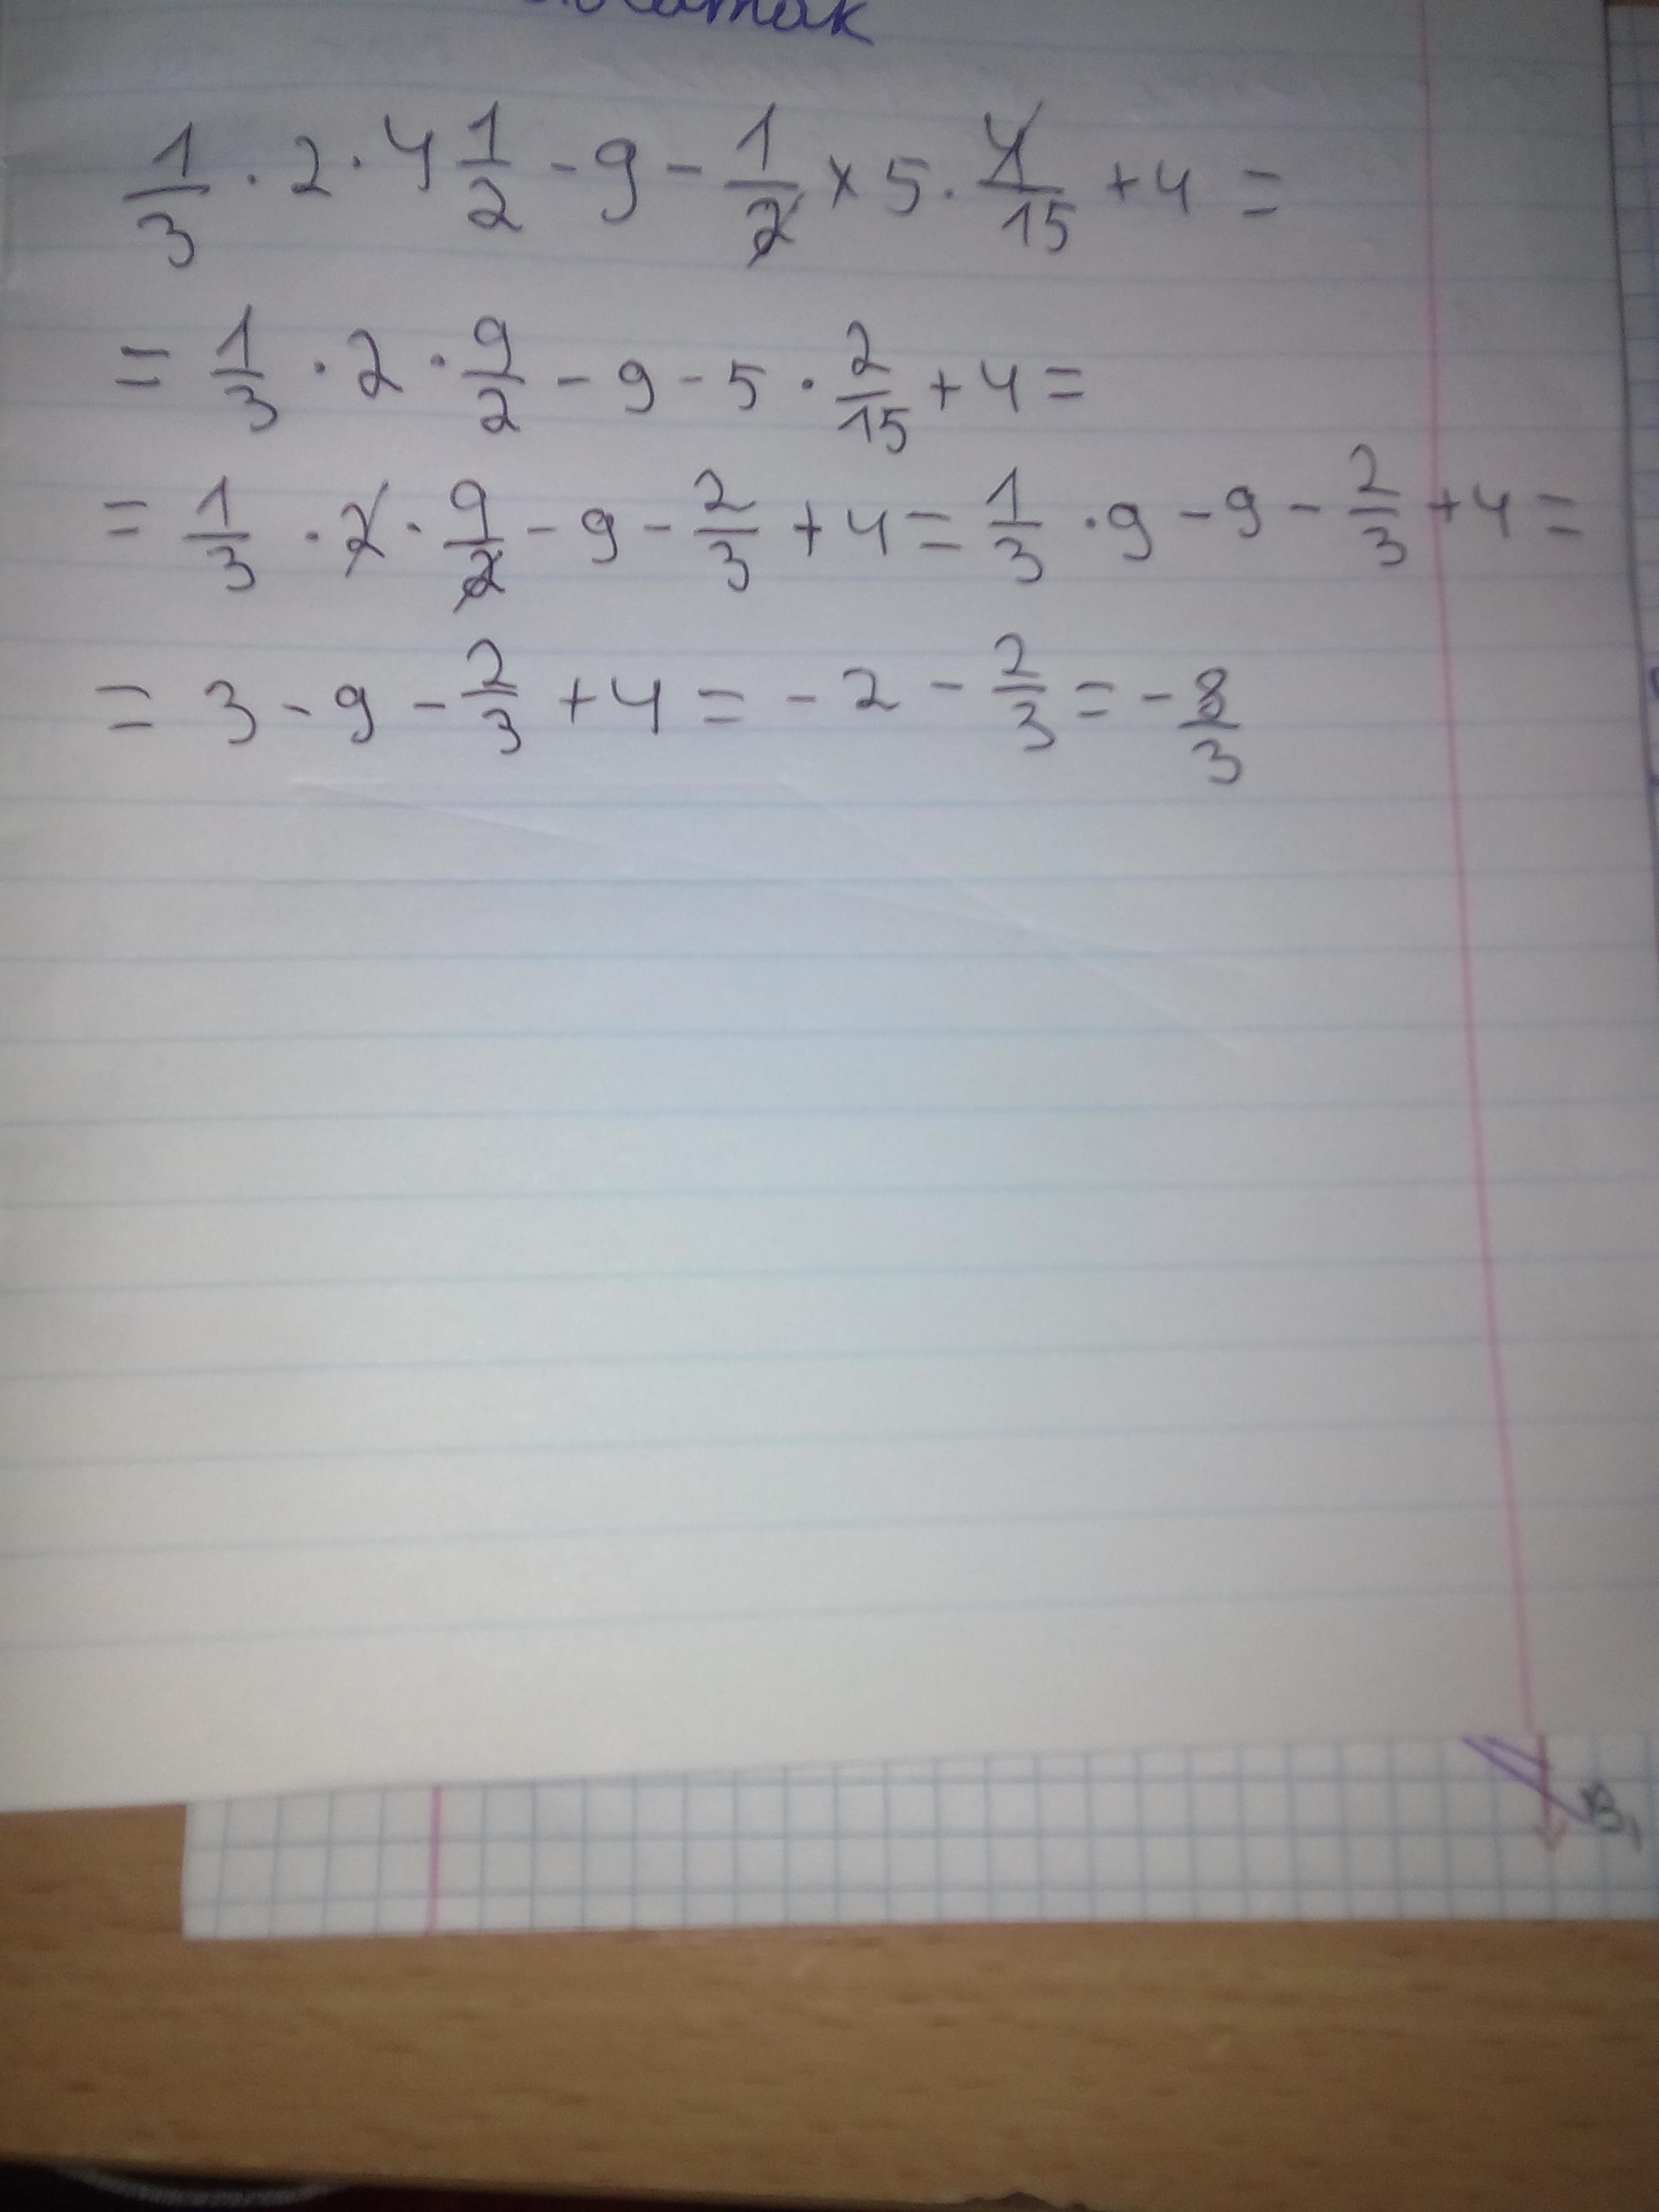 1/3 · 2 · 4 1/2 - 9 - 1/2 × 5 · 4/15 + 4 =
= 1/3 · 2 · 9/2 - 9 - 5 · 2/15 + 4 =
= 1/3 · 2 · 9/2 - 9 - 2/3 + 4 = 1/3 · 9 - 9 - 2/3 + 4 =
= 3 - 9 - 2/3 + 4 = - 2 - 2/3 = - 8/3